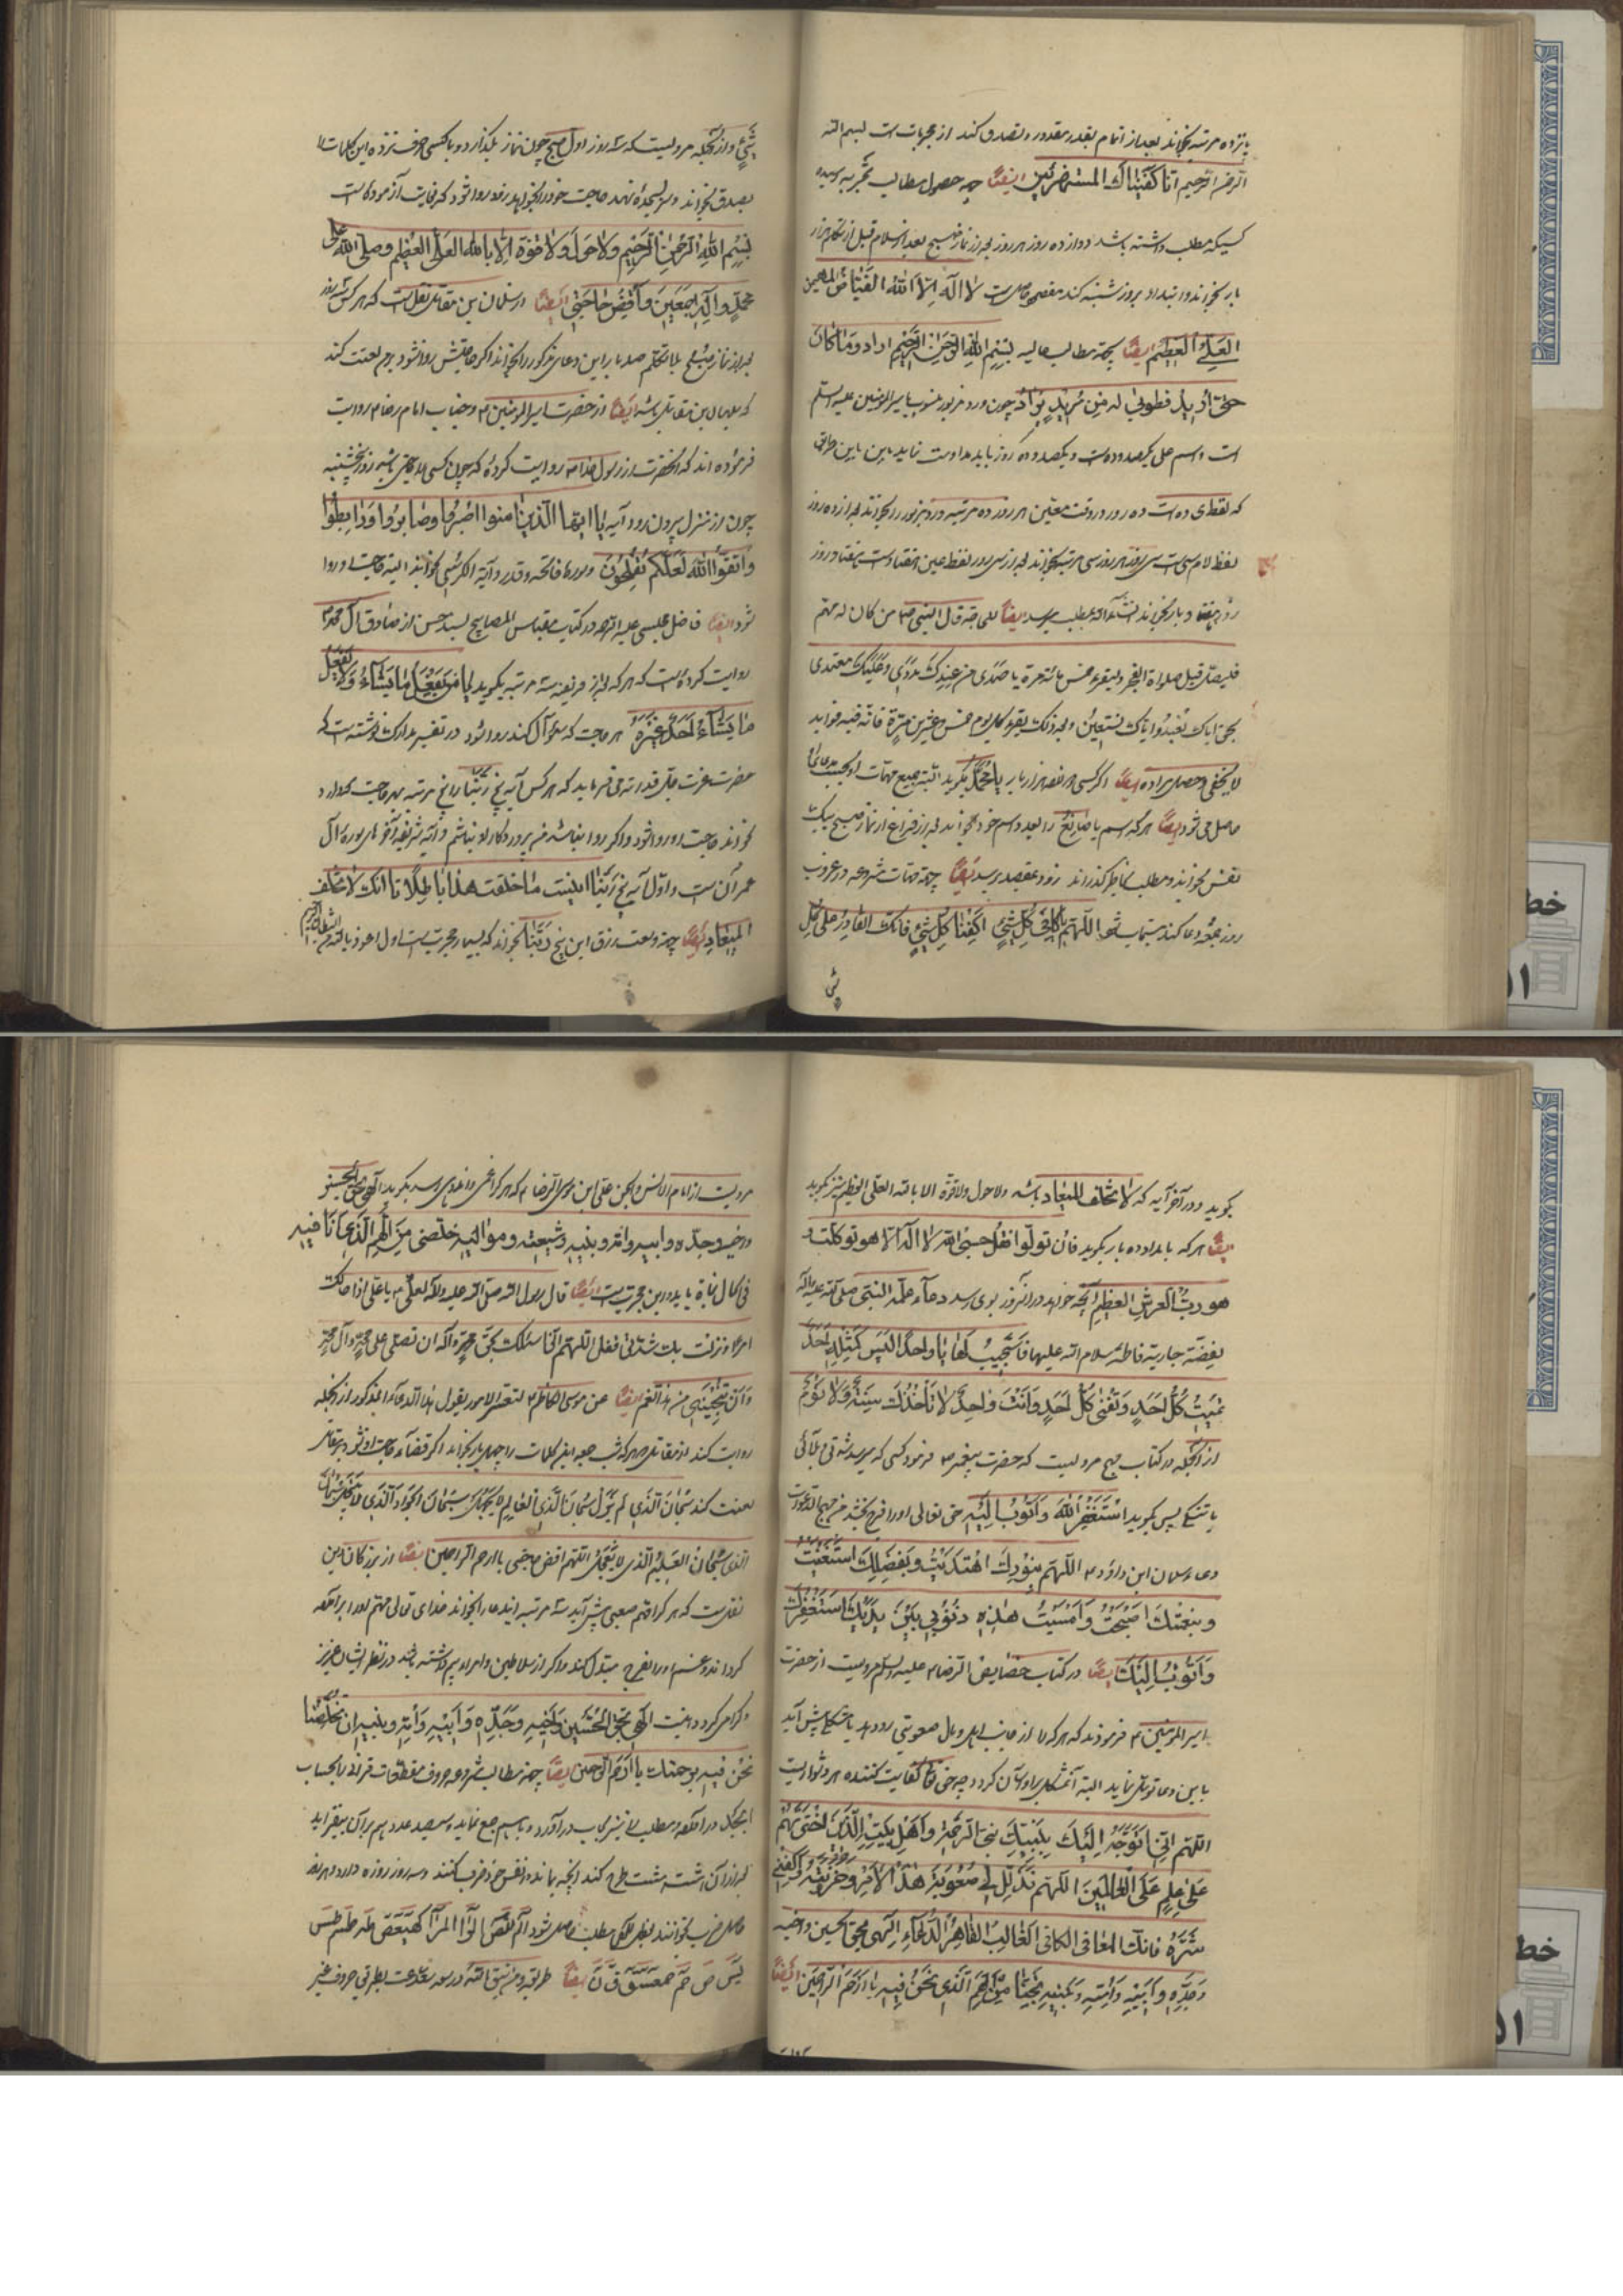 پانزده مرتبه بخواند بعد از اتمام بقدر مقدور تصدق کند از مجربات است بسم الله
الرحمن الرحیم انا کفیناک المستهزئین ایضاً جهة حصول مطالب بتجربه رسیده
کسیکه مطلب داشته باشد دوازده روز هر روز بعد از نماز صبح بعد از سلام قبل از تکلم هزار
بار بخواند و ابتدا از روز شنبه کند مقصد حاصل است لا اله الا الله الفیاض
العلی العظیم ایضاً بجهة مطالب عالیه بسم الله الرحمن الرحیم اراد وما کان
حتی ارید فطوبی له من مرید یراد چون ورد مزبور منسوب بامیرالمؤمنین علیه السلم
است و اسم علی یکصد و ده است و یکصد و ده روز باید مداومت نماید باین طریق
که نقطه ی ده است ده روز در وقت معین هر روز ده مرتبه ورد مزبور را بخواند بعد از ده روز
لفظ لام سی است سی روز هر روز سی مرتبه بخواند بعد از سی روز لفظ عین هفتاد است هفتاد روز
روزی هفتاد بار بخواند انشاءالله بمطلب میرسد ایضاً قال النبی ص من کان له مهم
فلیصل قبل صلواة الفجر ولیقرء خمس مائة مرة یا صمدی من عندک مددی وعلیک معتمدی
بحق ایاک نعبد وایاک نستعین وبعد ذلک یقرء کل یوم خمس وعشرین مرة فانه فیه فواید
لا یخفی وحصل مراده ایضاً اگر کسی هر روز هزار بار یا محمد بگوید البته جمیع مهمات او
حاصل می شود ایضاً هر که اسم یا صانع را بعدد اسم خود بخواند بعد از فراغ از نماز صبح بیک
نفس بخواند و مطلب بخاطر گذراند زود بمقصد برسد ایضاً جهة مهمات مشروعه در غروب
روز جمعه دعا کند مستجاب شود اللهم یا کافی کل شیء اکفنا کل شیء فانک القادر علی کل
شی
شیء و از آنجمله مرویست که سه روز اول صبح چون نماز بگذارد و با کسی حرف نزده این کلمات را
بصدق بخواند و سر بسجده نهد حاجت خود را بخواهد زود روا شود که بغایت آزموده است
بسم الله الرحمن الرحیم ولا حول ولا قوة الا بالله العلی العظیم وصلی الله علی
محمد وآله اجمعین واقض حاجتی ایضاً از سلمان بن مقاتل نقل است که هر کس سه روز
بعد از نماز صبح بلا تکلم صد بار این دعای مذکور را بخواند اگر حاجتش روا نشود برم لعنت کند
که سلیمان بن مقاتل باشد ایضاً از حضرت امیرالمؤمنین ع و جناب امام رضا ع روایت
فرموده اند که آنحضرت از رسول خدا ص روایت کرده که چون کسی را حاجتی باشد روز پنجشنبه
چون از منزل بیرون رود آیه یا ایها الذین امنوا اصبروا وصابروا ورابطوا
واتقوا الله لعلکم تفلحون و سوره فاتحه و قدر و آیة الکرسی بخواند البته حاجت او روا
شود ایضاً فاضل مجلسی علیه الرحمه در کتاب مقباس المصابیح بسند حسن از صادق آل محمد ع
روایت کرده است که هر که بعد از فریضه سه مرتبه بگوید یا من یفعل ما یشاء ولا یفعل
ما یشاء احد غیره هر حاجت که سؤال کند روا شود در تفسیر مدارک نوشته است که
حضرت عزت جل قدرته می فرماید که هر کس آیه پنج ربنا را پنج مرتبه بهر حاجت که دارد
بخواند حاجت او روا شود و اگر روا نباشد من پروردگار او نباشم و آیه شریفه آخرهای سوره آل
عمران است و اول آیه پنج ربنا اینست ما خلقت هذا باطلا تا انک لا تخلف
المیعاد ایضاً جهة وسعت رزق این پنج ربنا بخواند که بسیار مجرب است اول اعوذ بالله من الشیطان الرجیم
بگوید و در آخر آیه که لا تخلف المیعاد باشد ولا حول ولا قوة الا بالله العلی العظیم نیز بگوید
ایضاً هر که بامداد ده بار بگوید فان تولوا فقل حسبی الله لا اله الا هو توکلت و
هو رب العرش العظیم آنچه خواهد در آنروز بوی رسد دعاء علمه النبی صلی الله علیه وآله
بفضة جاریة فاطمة سلام الله علیها فاستجیب لها یا واحداً لیس کمثله احد
تمیت کل احد وتفنی کل احد وانت واحد لا تاخذک سنة ولا نوم
از آنجمله در کتاب مهج مرویست که حضرت پیغمبر ص فرمود کسی که میرسد شدتی و بلائی
یا تنگی پس بگوید استغفر الله واتوب الیه حق تعالی او را فرج بخشد من مهج الدعوات
دعاء سلمان ابن داود ع اللهم بنورک اهتدیت وبفضلک استغنیت
وبنعمتک اصبحت وامسیت هذه ذنوبی بین یدیک استغفرک
واتوب الیک ایضاً در کتاب خصایص الرضا ع علیه السلم مرویست از حضرت
امیرالمؤمنین ع فرمودند که هر که را از جانب اهل و مال صعوبتی رو دهد یا مشکلی پیش آید
باین دعا توسل نماید البته آن مشکل براو آسان گردد چه حق تعالی کفایت کننده هر دشواریست
اللهم انی اتوجه الیک بنبیک نبی الرحمة واهل بیته الذین اخترتهم
علی علم علی العالمین اللهم ذلل لی صعوبة هذا الامر وحزونته واکفنی
شره فانک المعافی الکافی الغالب القاهر الدعاء الهی بحق الحسین واخیه
وجده وابیه وامه وبنیه نجنا من الهم الذی نحن فیه یا ارحم الراحمین ایضاً
مرویست از امام الانس والجن علی ابن موسی الرضا ع که هر که را غمی و اندوهی رسد بگوید الهی بحق الحسین
واخیه وجده وابیه وامه وبنیه وشیعته وموالیه خلصنی من الهم الذی انا فیه
ایضاً قال رسول الله صلی الله علیه وآله لعلی ع یا علی اذا هالک
امر او نزلت بک شدة فقل اللهم انی اسئلک بحق محمد وآله ان تصلی علی محمد وآل محمد
وان تنجینی من هذا الغم ایضاً عن موسی الکاظم ع لتعسر الامور یقول هذا الدعاء المذکور از آنجمله
روایت کند از مقاتل هر که شب جمعه این کلمات را چهل بار بخواند اگر قضاء حاجت او نشود بر مقاتل
لعنت کند سبحان الذی لم یزل سبحان العالم سبحان الجواد الذی لا یبخل سبحان
سبحان العلیم الذی لا یعجل اللهم اقض حاجتی یا ارحم الراحمین ایضاً از بزرگان دین
نقلست که هر کرا مهم صعبی پیش آید سه مرتبه ایندعا را بخواند خدای تعالی مهم او را برآورده
گرداند و غم او را بفرح مبدل کند و اگر از سلاطین و امرا بیم داشته باشد در نظر ایشان عزیز
و گرامی گردد اینست الهی بحق الحسین واخیه وجده وابیه وامه وبنیه ان تخلصنا
نحن فیه برحمتک یا ارحم الراحمین ایضاً جهة مطالب مشروعه حروف مقطعات قرآنی را بحساب
ابجد درآورده و مطلب را نیز بحساب درآورد و باهم جمع نماید و سیصد عدد هم بر آن بیفزاید
بعد از آن هشت هشت طرح کند آنچه بماند در نفس خود ضرب کنند و سه روز روزه دارد و هر روز
حاصل ضرب بخوانند مطلب حاصل شود الم المص الر المر کهیعص طه طسم طس
یس ص حم حمعسق ق ن ایضاً طریقه بطریق حروف غیر
خط
۵۱